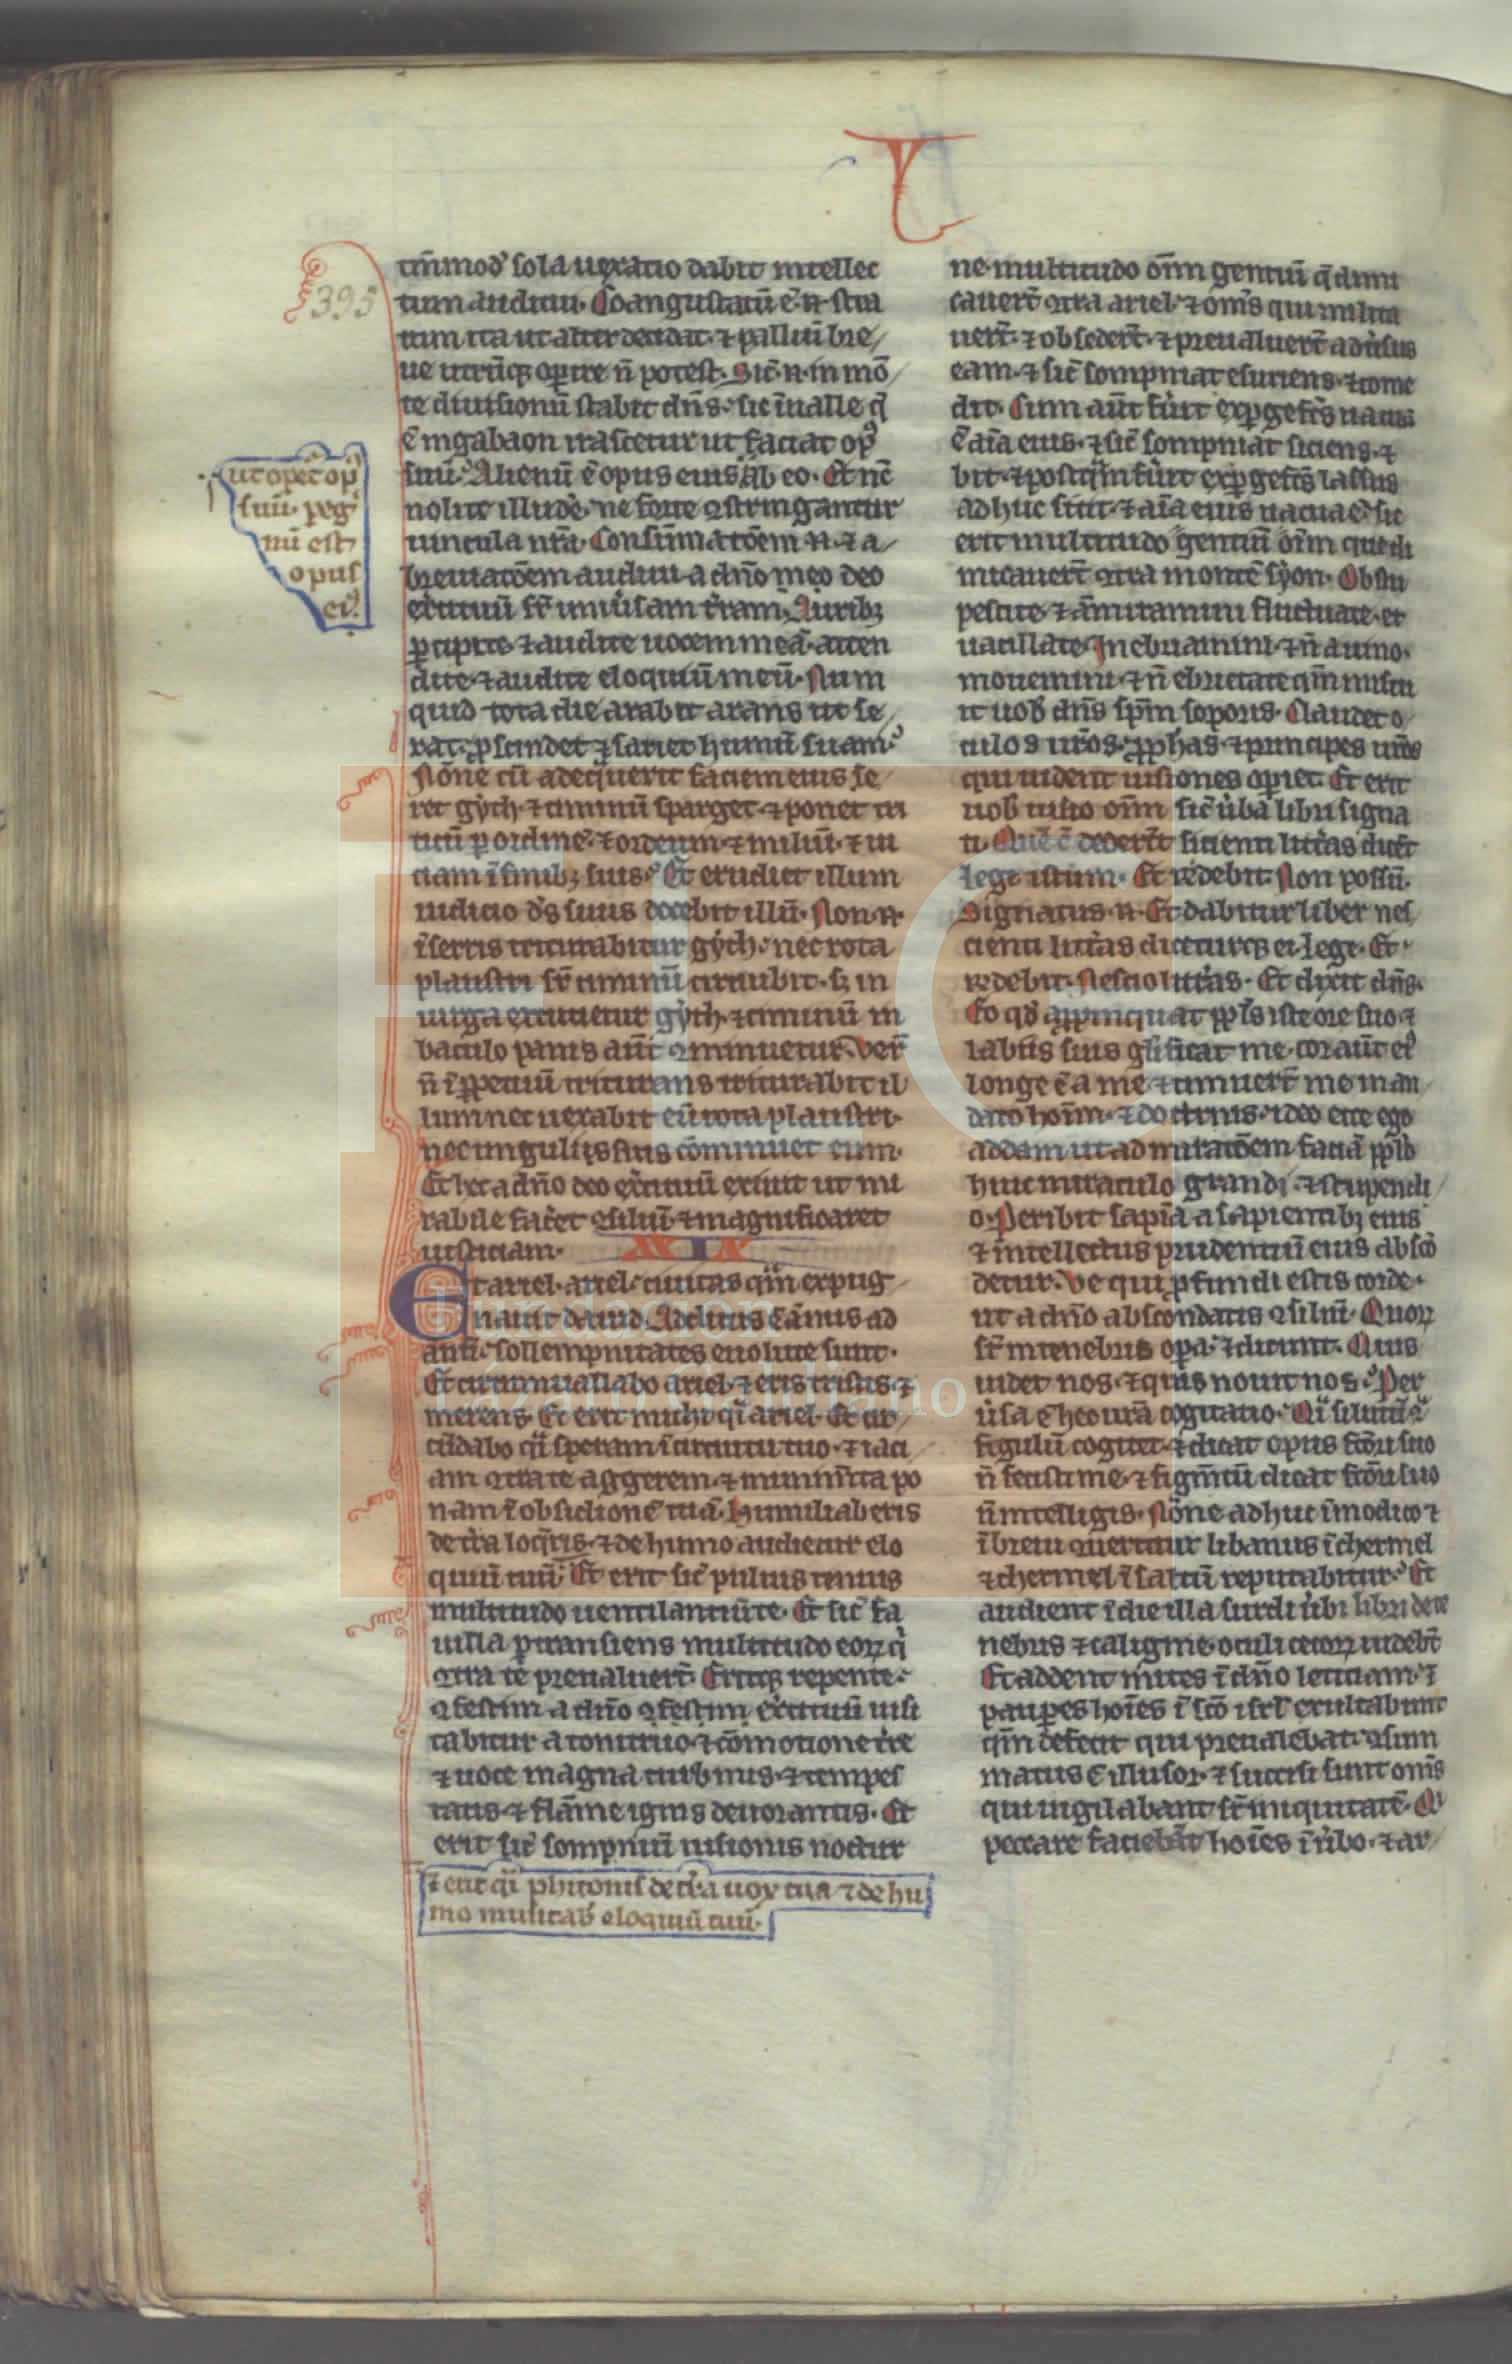 395
tm̄mod' sola uexatio dabit intellec
tum auditui. Coangustatū ē .n. stra
tum ita ut alter decidat. ⁊ palliū bre/
ue utrūq; operire n̄ potest. Sic̄ .n. in mō/
te diuisionū stabit dn̄s. sic ī ualle q̄
ē in gabaon irascetur ut faciat op⁹
suū. Alienū ē opus eius ab eo. Et nc̄
nolite illude᷑ ne forte ꝯstringantur
uincula nr̄a. Consūmatōem .n. ⁊ a/
breuiatōem audiui a dn̄o meo deo
exercituū sr̄ uniu᷑sam t᷑ram. Aurib;
ꝑcipite ⁊ audite uocem meā. atten
dite ⁊ audite eloquiū meū. Num
quid tota die arabit arans ut se/
rat. ꝓscindet ⁊ sariet humū suam.
Nōne cū adequerit faciem eius se/
ret gyth. ⁊ ciminū sparget. ⁊ ponet tri
ticū ꝑ ordinē. ⁊ ordeum ⁊ miliū. ⁊ ui
ciam ī finib; suis. Et erudiet illum
iudicio ds̄ suus docebit illū. Non .n.
ī serris triturabitur gyth. nec rota
plaustri sr̄ ciminū circuibit. s; in
uirga excutietur gyth. ⁊ ciminū in
baculo panis aūt ꝯminuetur. Ver̄
n̄ ī ꝑpetuū triturans triturabit il
lum nec uexabit eū rota plaustri.
nec ungulis suis cōminuet eum.
Et hec a dn̄o deo exercituū exiuit ut mi
rabile fac᷑et ꝯsiliū ⁊ magnificaret
iusticiam. XXIX
Et ariel. ariel. ciuitas quā expug
nauit dauid. Additus ē annus ad
annū. sollempnitates euolute sunt.
Et circumuallabo ariel. ⁊ eris tristis ⁊
merens. Et erit michi q̄i ariel. Et cir/
cūdabo q̄i speram ī circuitu tuo. ⁊ iaci
am ꝯtra te aggerem ⁊ munim̄ta po
nam ī obsidionē tuā. Humiliaberis
de t᷑ra loq̄ris. ⁊ de humo audietur elo
quiū tuū. Et erit sic̄ puluis tenuis
multitudo uentilantiū te. Et sic̄ fa
uilla ꝑtransiens multitudo eoꝝ q̄
ꝯtra te preualuer̄t. Eritq; repente.
ꝯfestim. a dn̄o ꝯfestim exercituū uisi
tabitur a tonitruo. ⁊ cōmotione t᷑re
⁊ uoce magna turbinis. ⁊ tempes
tatis. ⁊ flāme ignis deuorantis. Et
erit sic̄ sompniū uisionis noctur
ut opet̄ op⁹
suū. peg'
nū est
opus
ei⁹.
⁊ erit q̄i phitonis de t᷑ra uox tua ⁊ de hu
mo musitab̄ eloquiū tuū.
ne multitudo om̄n gentiū q̄ dimi
cauer̄t ꝯtra ariel. ⁊ om̄s qui milita
uer̄t. ⁊ obseder̄t. ⁊ preualuer̄t adu᷑sus
eam. ⁊ sic̄ sompniat esuriens. ⁊ come
dit. Cum aūt fūit exꝑgefc̄s uacua
ē aīa eius. ⁊ sic̄ sompniat siciens. ⁊
bit. ⁊ postq̄m fūit exꝑgefc̄s lassus
adhuc sitit. ⁊ aīa eius uacua ē. sic
erit multitudo gentiū om̄n que di
micauer̄t ꝯtra montē syon. Obstu
pescite. ⁊ āmiramini fluctuate. et
uacillate. Inebriamini. ⁊ n̄ a uino.
mouemini. ⁊ n̄ ebrietate qm̄ miscu
it uob̄ dn̄s sp̄m soporis. Claudet o/
culos ur̄os. ꝓphas ⁊ principes ur̄os
qui uident uisiones opiet. Et erit
uob̄ uisio om̄n sic̄ u᷑ba libri signa
ti. Quē c̄ deder̄t scienti litt᷑as dicēt
lege istum. Et rēdebit. Non possū.
Signatus .n. Et dabitur liber nes/
cienti litt᷑as diceturq; ei. lege. Et
rēdebit. Nescio litt᷑as. Et dixit dn̄s.
Eo qd̄ appropinquat ppl̄s iste ore suo. ⁊
labiis suis gl̄ificat me. cor aūt ei⁹
longe ē a me. ⁊ timuer̄t me man/
dato hoīm. ⁊ doctrinis. ideo ecce ego
addam ut admiratōem faciā ppl̄o
huic miraculo grandi. ⁊ stupendi/
o. Peribit sapīa a sapientib; eius
⁊ intellectus prudentiū eius abscō
detur. Ve qui ꝓfundi estis corde.
ut a dn̄o abscondatis ꝯsiliū. Quoꝝ
st̄ in tenebris oꝑa. ⁊ dicunt. Quis
uidet nos. ⁊ quis nouit nos. Per
u᷑sa ē hec ur̄a cogitatio. Q̄i si lutū ꝯ̄
figulū cogitet. ⁊ dicat opus fc̄ori suo
n̄ fecisti me. ⁊ figm̄tū dicat fc̄ori suo
n̄ intelligis. Nōne adhuc ī modico ⁊
ī breui ꝯuertetur libanus ī chermel
⁊ chermel ī saltū reputabitur. Et
audient ī die illa surdi u᷑ba libri. de te
nebris ⁊ caligine oculi cecoꝝ uidebt̄
Et addent mites ī dn̄o leticiam. ⁊
pauꝑes hoīes ī sc̄o isrl̄ exultabunt
qm̄ defecit qui preualebat. ꝯsum
matus ē illusor. ⁊ succisi sunt om̄s
qui uigilabant sr̄ iniquitatē. Q'
peccare faciebāt hoīes ī u᷑bo. ⁊ ar/